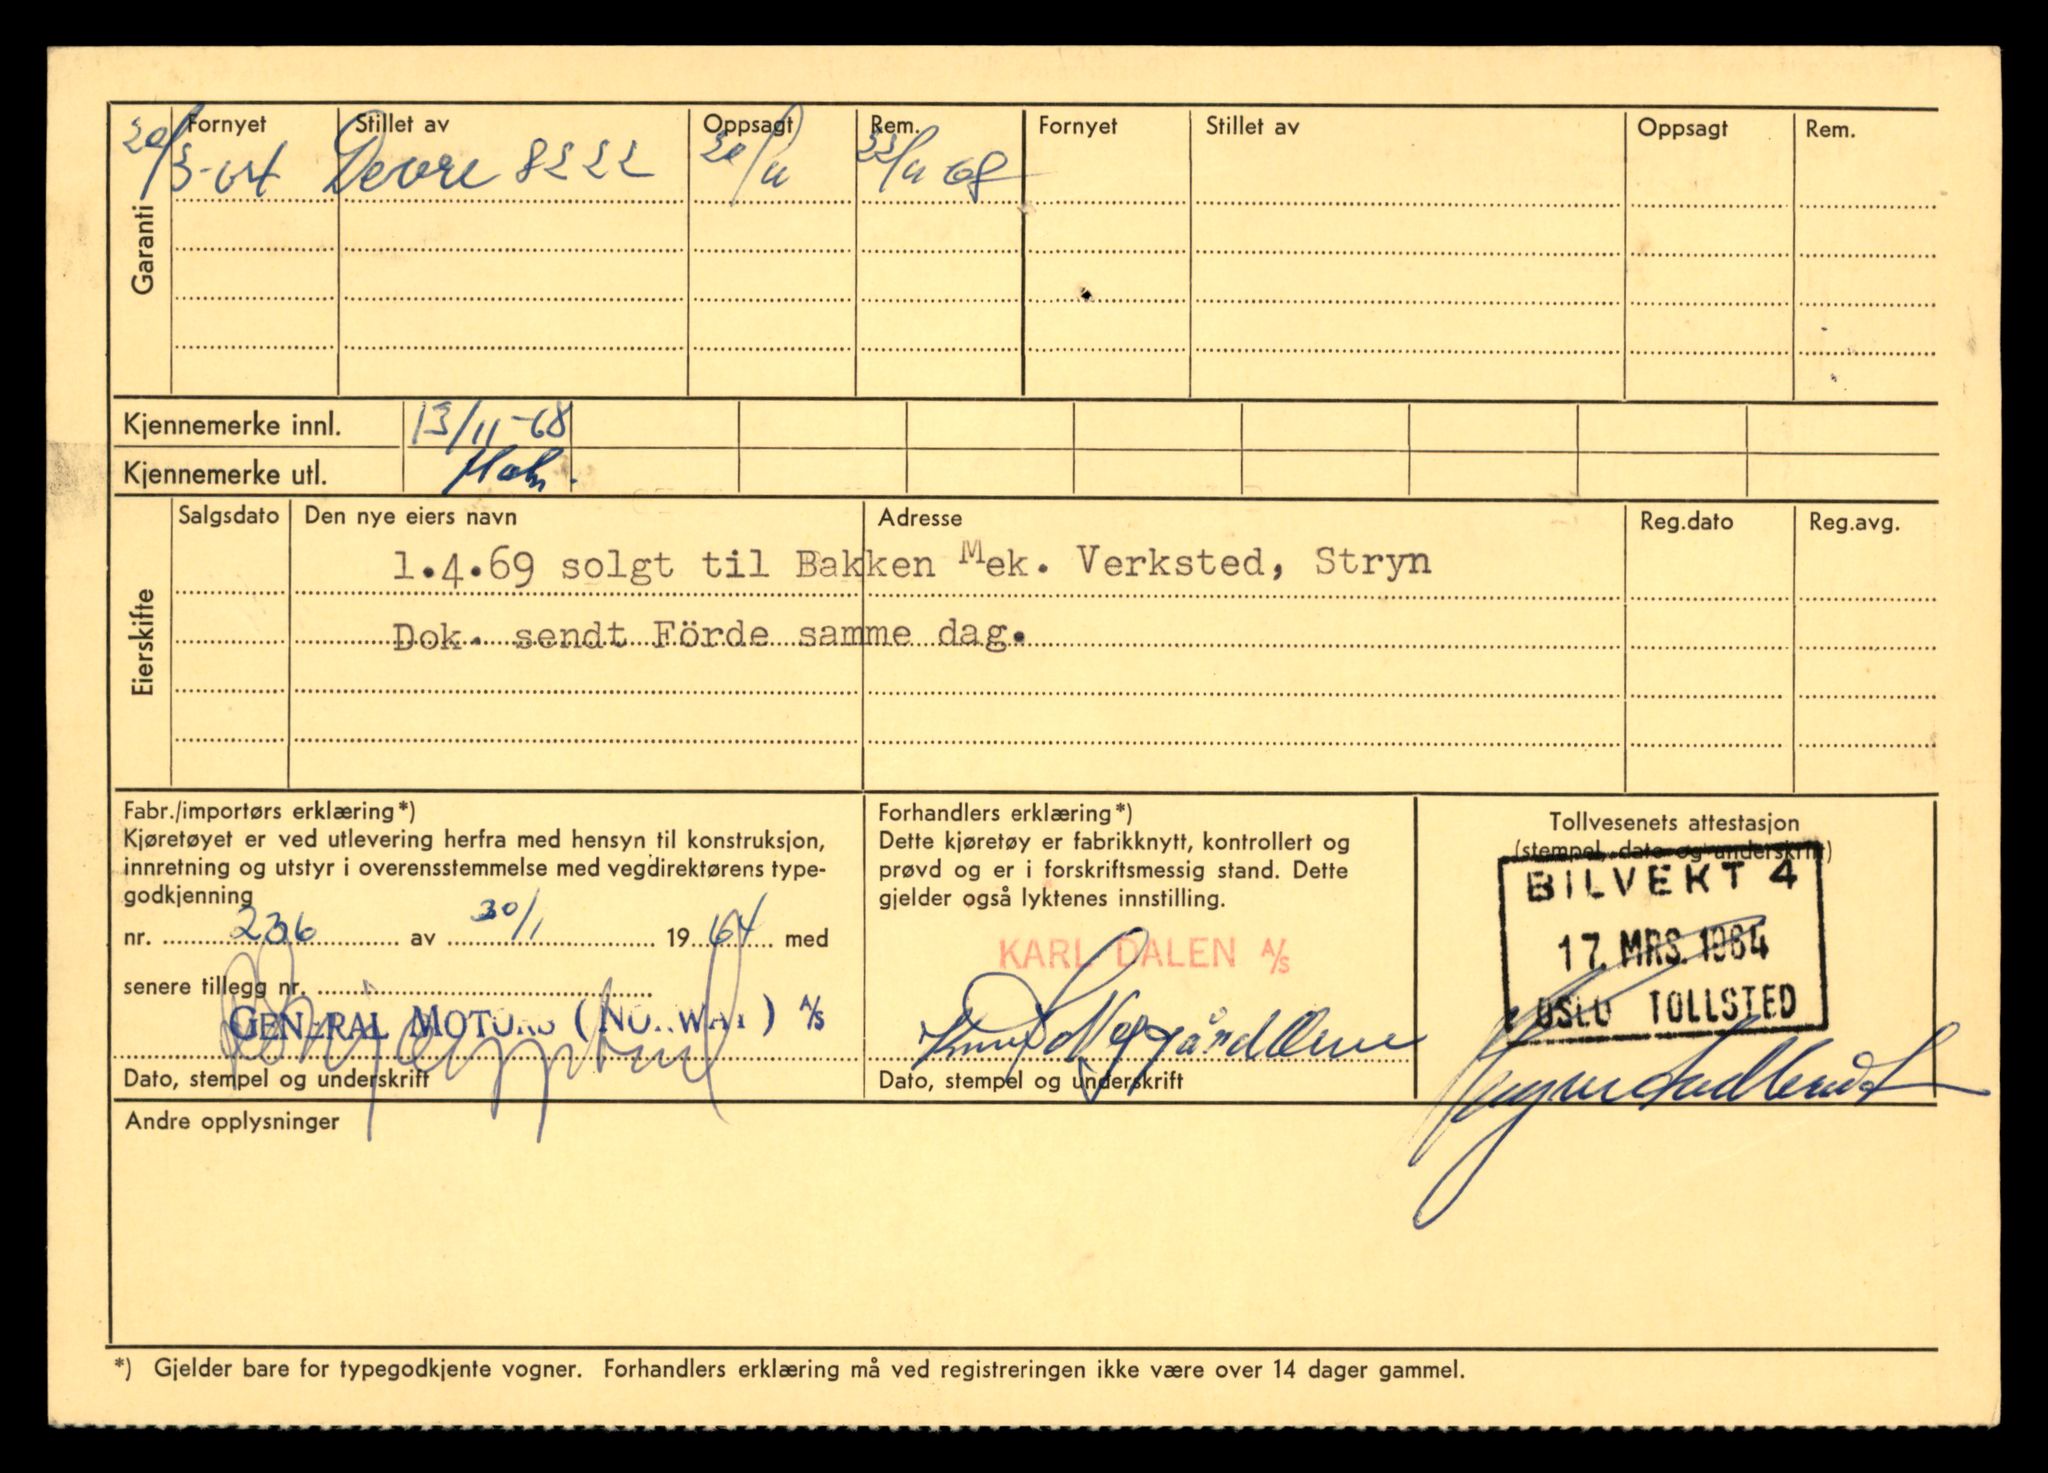 Garanti
Fornyet Stillet av Oppsagt Rem. Fornyet Stillet av Oppsagt Rem.
20/3-64 8222 20/11 22/11 68
Kjennemerke innl. 13/11-68
Kjennemerke utl.
Eierskifte
Salgsdato Den nye eiers navn Adresse Reg.dato Reg.avg.
1.4.69 solgt til Bakken Mek. Verksted, Stryn
Dok. sendt Förde samme dag.
Fabr./importørs erklæring*)
Kjøretøyet er ved utlevering herfra med hensyn til konstruksjon,
innretning og utstyr i overensstemmelse med vegdirektørens type-
godkjenning
nr. 236 av 30/1 1964 med
senere tillegg nr.
GENERAL MOTORS (NORWAY) A/S
Dato, stempel og underskrift
Forhandlers erklæring*)
Dette kjøretøy er fabrikknytt, kontrollert og
prøvd og er i forskriftsmessig stand. Dette
gjelder også lyktenes innstilling.
KARL DALEN A/S
Dato, stempel og underskrift
Tollvesenets attestasjon
(stempel, dato og underskrift)
BILVEKT 4
17. MRS. 1964
OSLO TOLLSTED
Andre opplysninger
*) Gjelder bare for typegodkjente vogner. Forhandlers erklæring må ved registreringen ikke være over 14 dager gammel.